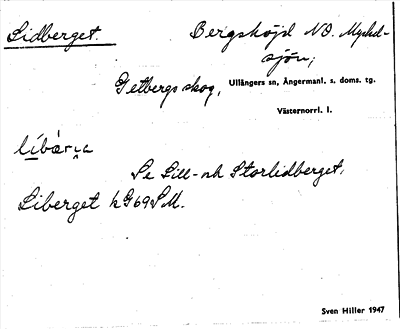 Lidberget.
Bergshöjd NO. Mycked-
sjön,
Getbergs skog, Ullångers sn, Ångermanl. s. doms. tg.
Västernorrl. l.
Se Lill- och Storlidberget.
Liberget kG69SM.
Sven Hiller 1947